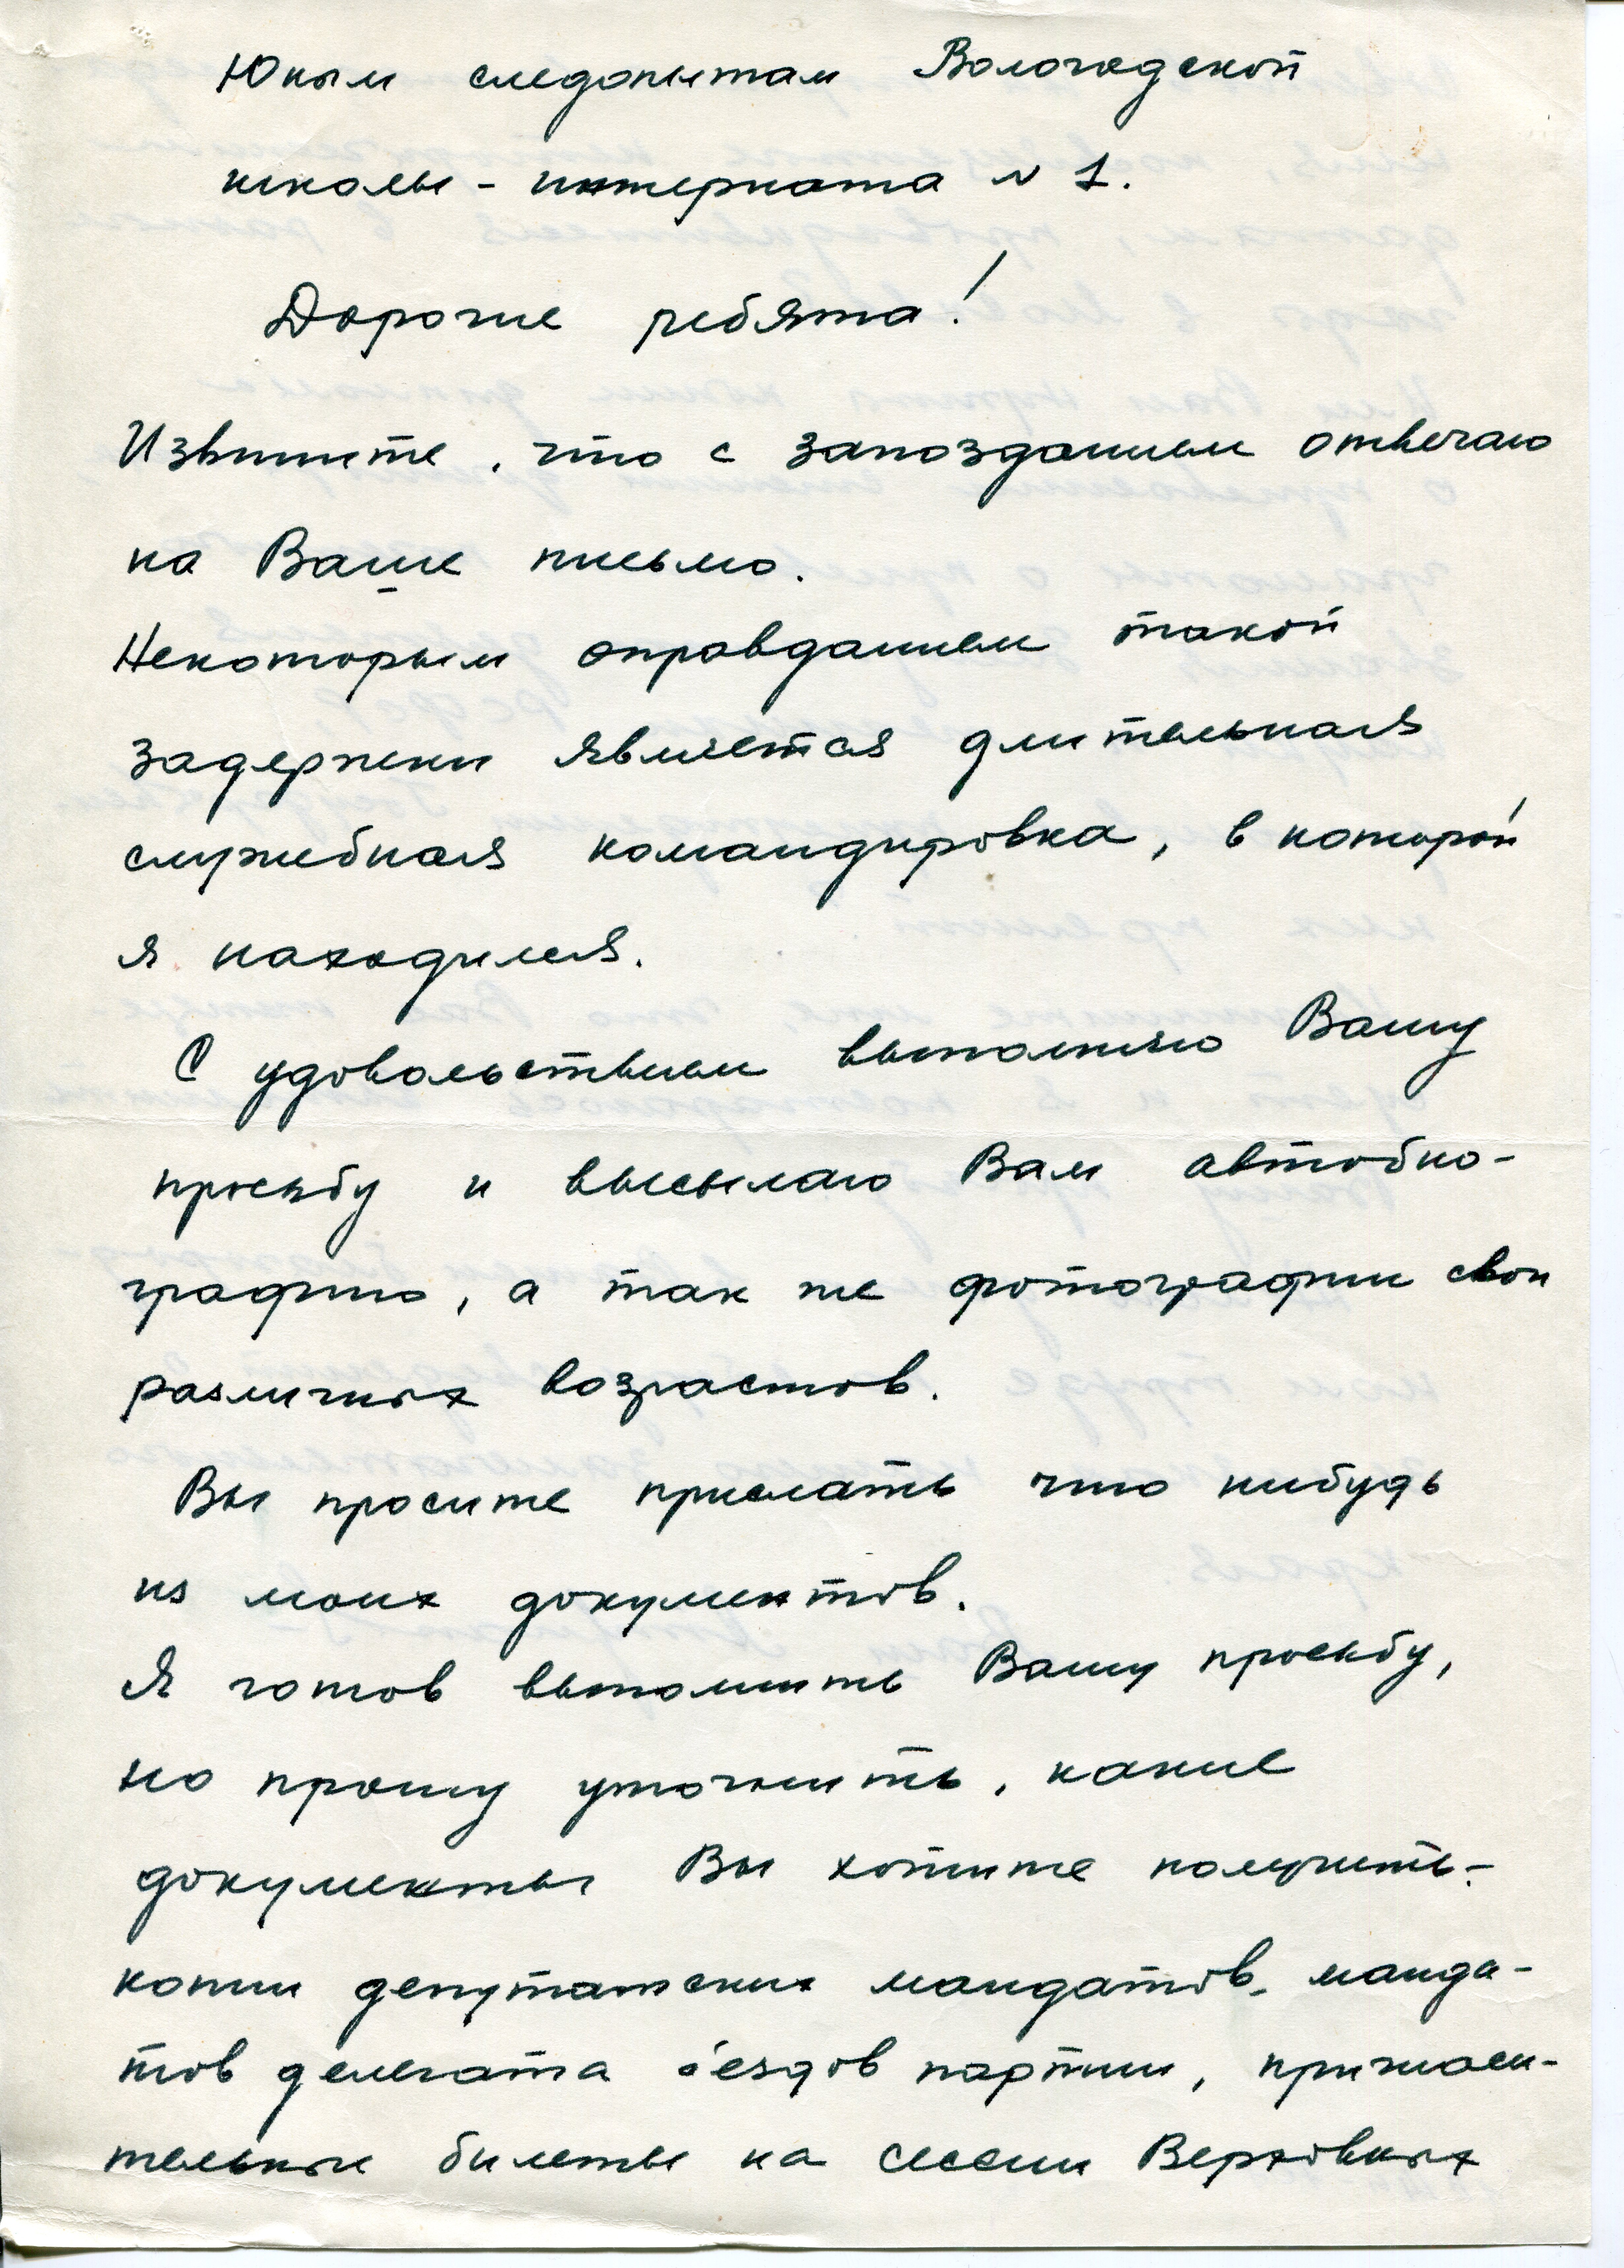 Юным следопытам Вологодской
школы - интерната N 1.
Дорогие ребята!
Извините, что с запозданием отвечаю
на Ваше письмо.
Некоторым оправданием такой
задержки является длительная
служебная командировка, в которой
я находился.
С удовольствием выполняю Вашу
просьбу и высылаю Вам автобио-
графию, а так же фотографии свои
различных возрастов.
Вы просите прислать что нибудь
из моих документов.
Я готов выполнить Вашу просьбу,
но прошу уточнить, какие
документы Вы хотите получить -
копии депутатских мандатов, манда-
тов делегата с'ездов партии, пригласи-
тельные билеты на сессии Верховных